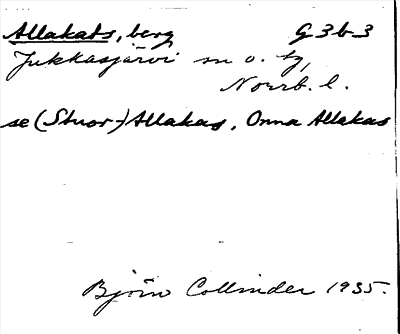 Allakats, berg G3b3
Jukkasjärvi sn o. tg,
Norrb. l.
se (Stuor-)Allakas, Onna Allakas
Björn Collinder 1935.